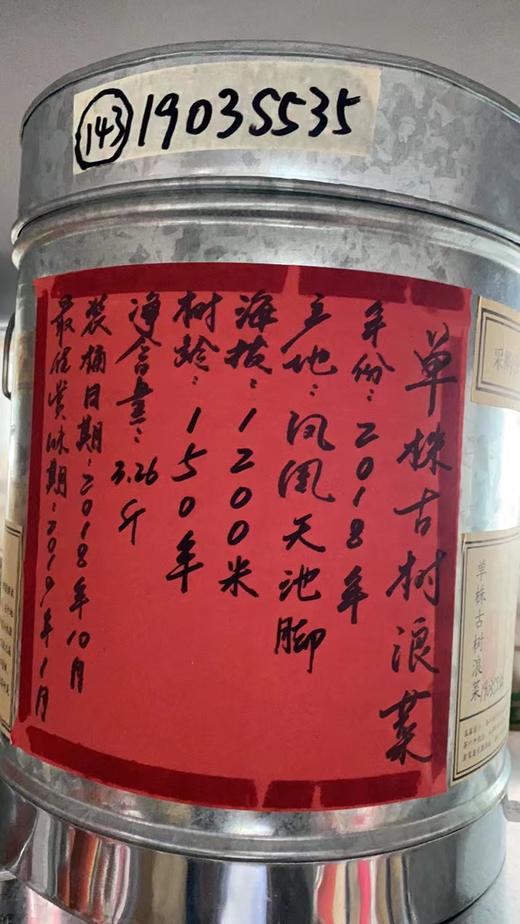 143 1903S535
单株古树浪菜
年份：2018年
主地：凤凰天池脚
海拔：1200米
树龄：150年
净含量：3.26斤
装桶日期：2018年10月
最佳赏味期：2019年1月
单株古树浪菜